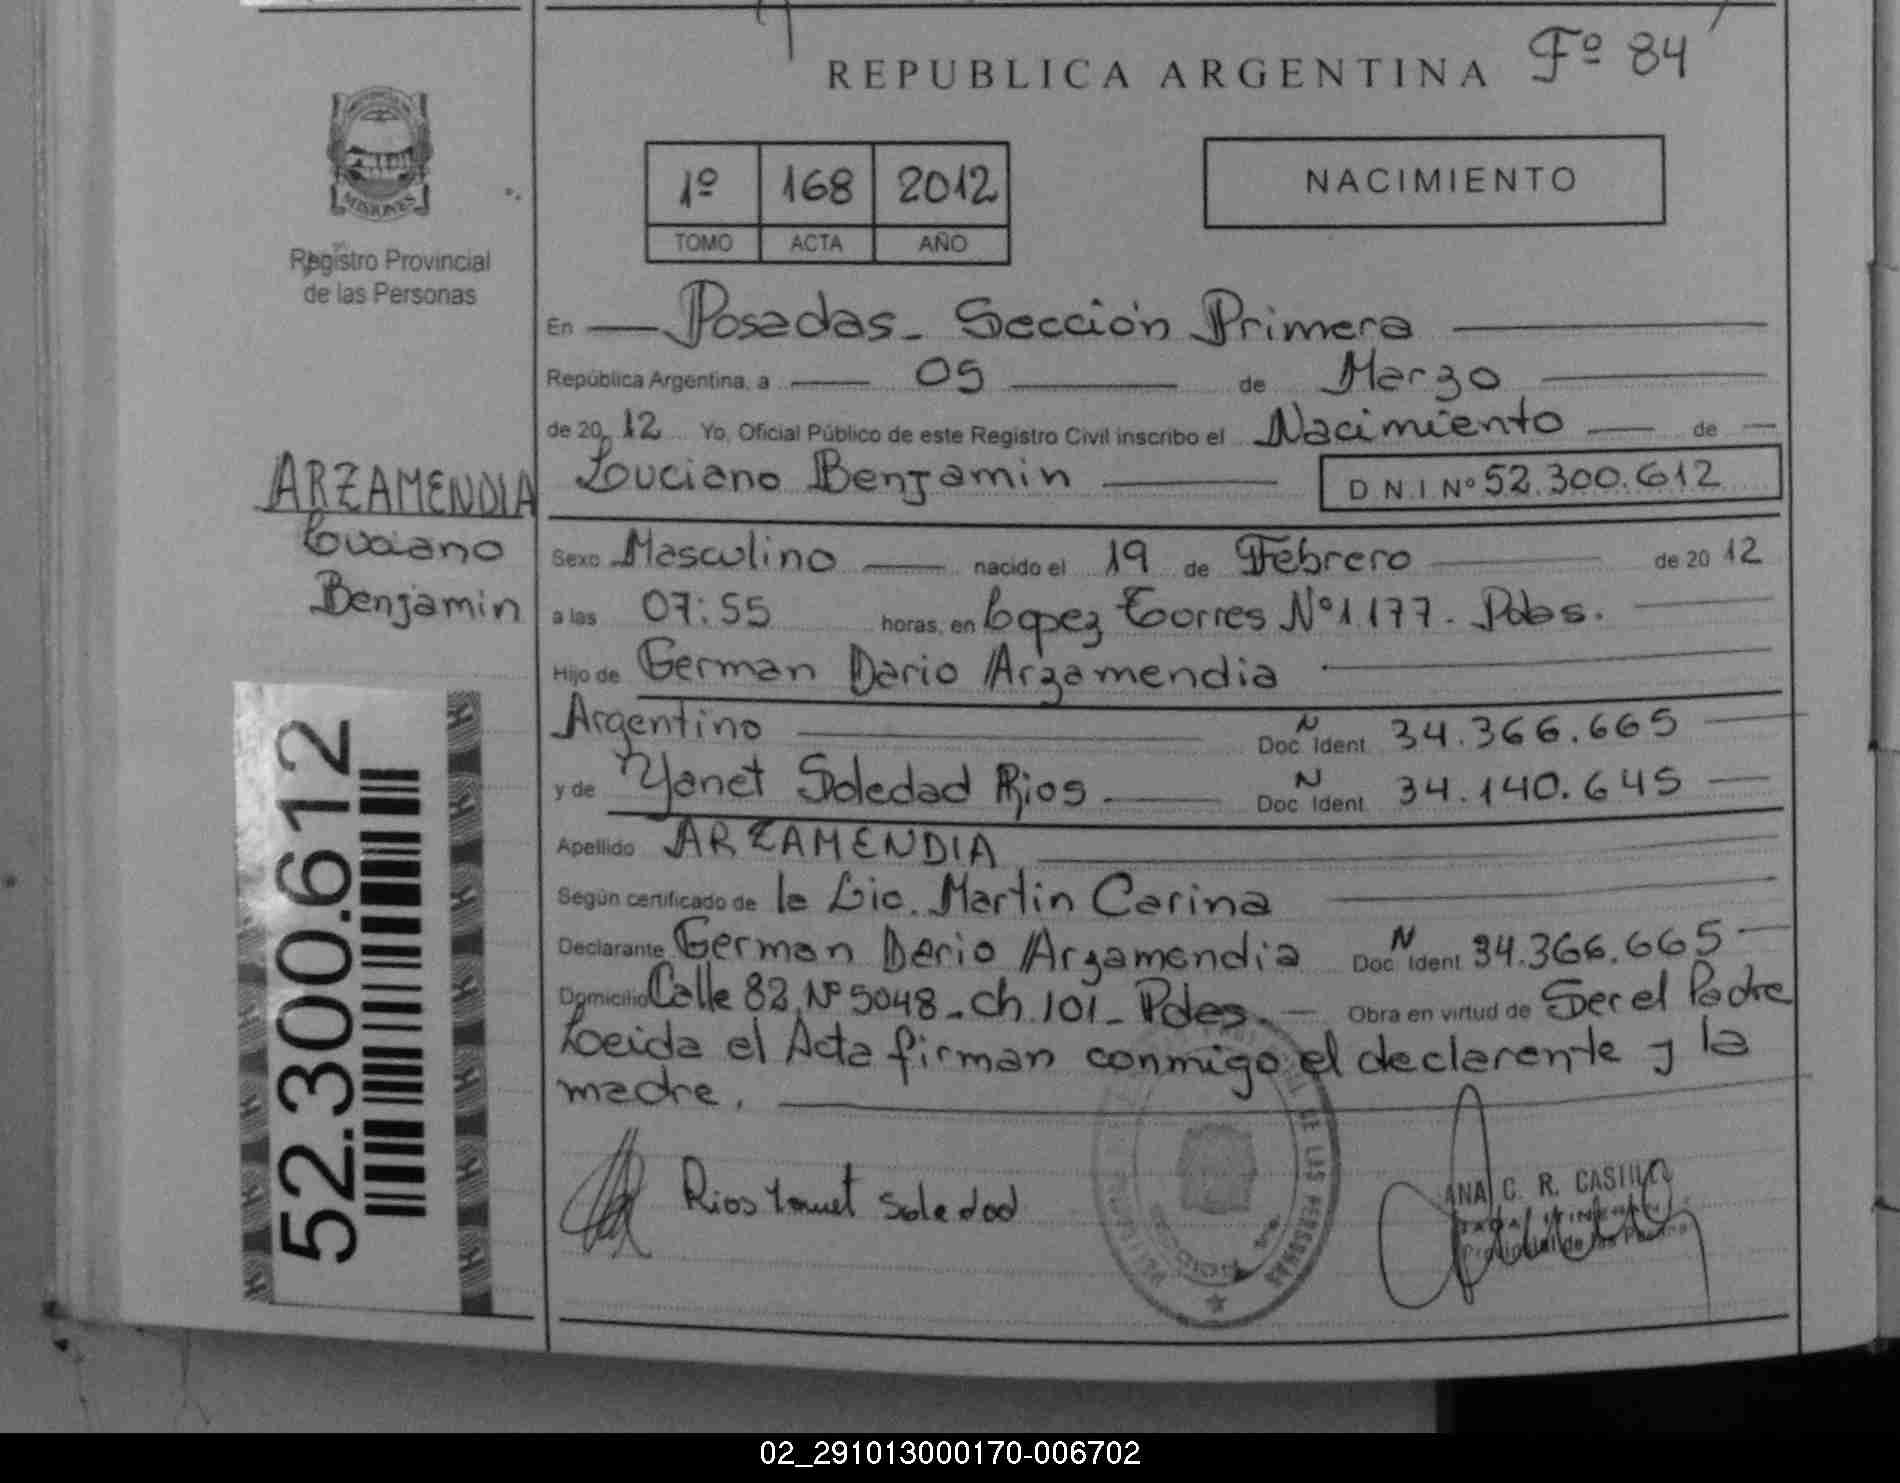 REPUBLICA ARGENTINA Fº 84
MISIONES
Registro Provincial
de las Personas
1º 168 2012
TOMO ACTA AÑO
NACIMIENTO
En Posadas - Sección Primera
República Argentina, a 05 de Marzo
de 20 12 Yo, Oficial Público de este Registro Civil inscribo el Nacimiento de
Luciano Benjamin D N I Nº 52.300.612
ARZAMENDIA
Luciano
Benjamin
Sexo Masculino nacido el 19 de Febrero de 20 12
a las 07:55 horas, en Lopez Torres Nº 1177 - Pdas.
Hijo de German Dario Arzamendia
Argentino Doc. N Ident. 34.366.665
y de Yanet Soledad Rios Doc. N Ident. 34.140.645
Apellido ARZAMENDIA
Según certificado de la Lic. Martin Carina
Declarante German Dario Arzamendia Doc. N Ident. 34.366.665
Domicilio Calle 82 Nº 5048 - Ch. 101 - Pdas. Obra en virtud de Ser el Padre
Leida el Acta firman conmigo el declarante y la
madre.
52.300.612
Rios Yanet Soledad
DE LAS PERSONAS
ANA C. R. CASTILLO
Provincial de las Personas
02_291013000170-006702